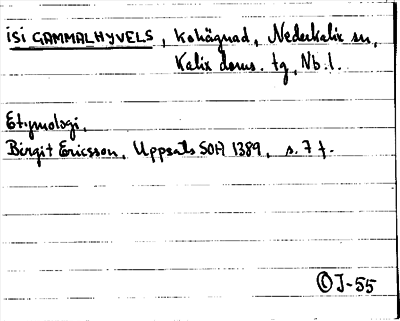 ISI GAMMALHYVELS, kohägnad, Nederkalix sn,
Kalix doms. tg, Nb. l.
Etymologi.
Birgit Ericsson, Uppsats SOH 1389, s. 7 f.
© J-55